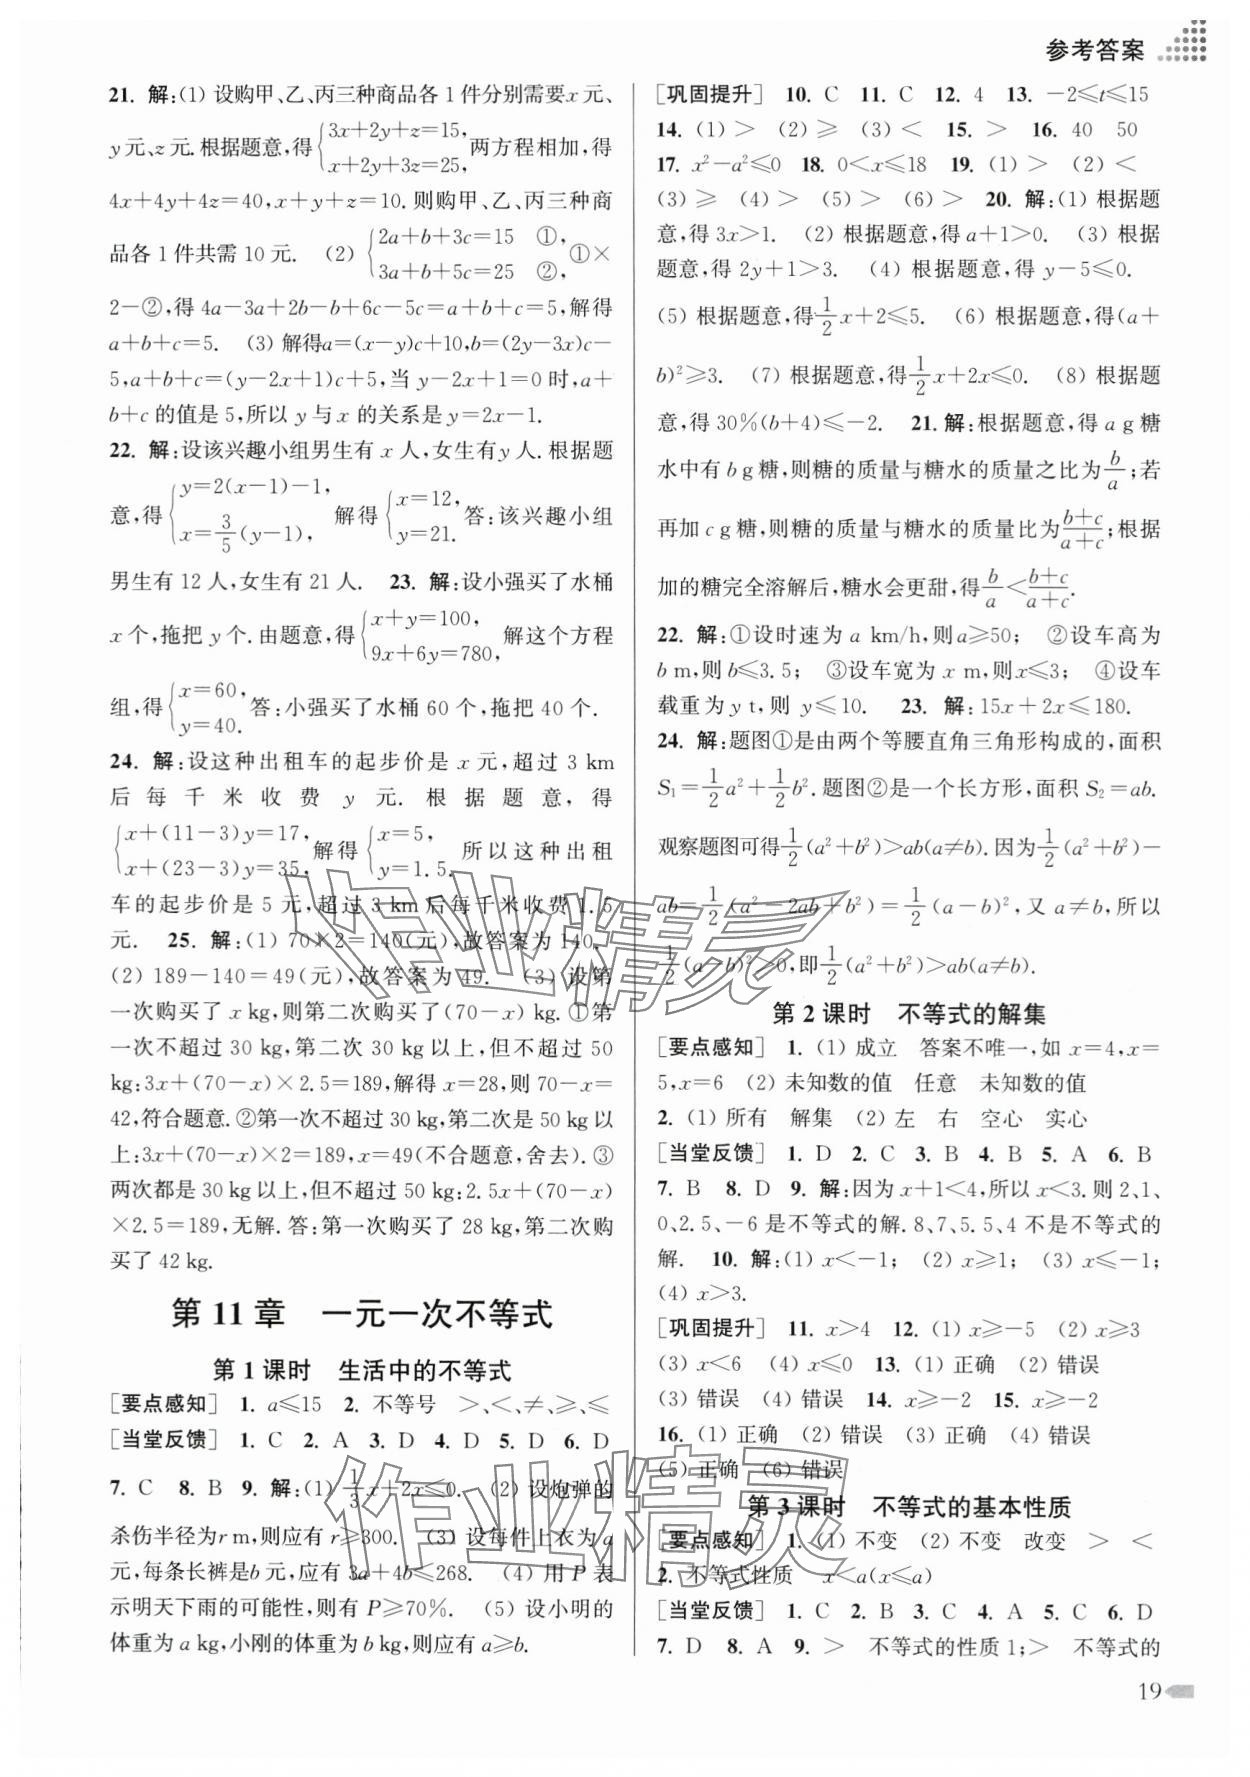 参考答案
21. 解:(1) 设购甲、乙、丙三种商品各 1 件分别需要 x 元、
y 元、z 元. 根据题意,得 {3x+2y+z=15, x+2y+3z=25, 两方程相加,得
4x+4y+4z=40,x+y+z=10. 则购甲、乙、丙三种商
品各 1 件共需 10 元. (2) {2a+b+3c=15 ①, 3a+b+5c=25 ②, ①×
2-②,得 4a-3a+2b-b+6c-5c=a+b+c=5,解得
a+b+c=5. (3) 解得a=(x-y)c+10,b=(2y-3x)c-
5,a+b+c=(y-2x+1)c+5,当 y-2x+1=0 时,a+
b+c 的值是 5,所以 y 与 x 的关系是 y=2x-1.
22. 解:设该兴趣小组男生有 x 人,女生有 y 人. 根据题
意,得 {y=2(x-1)-1, x=3/5(y-1), 解得 {x=12, y=21. 答:该兴趣小组
男生有 12 人,女生有 21 人. 23. 解:设小强买了水桶
x 个,拖把 y 个. 由题意,得 {x+y=100, 9x+6y=780, 解这个方程
组,得 {x=60, y=40. 答:小强买了水桶 60 个,拖把 40 个.
24. 解:设这种出租车的起步价是 x 元,超过 3 km
后每千米收费 y 元. 根据题意,得
{x+(11-3)y=17, x+(23-3)y=35, 解得 {x=5, y=1.5. 所以这种出租
车的起步价是 5 元,超过 3 km 后每千米收费 1.5
元. 25. 解:(1) 70×2=140(元),故答案为 140.
(2) 189-140=49(元),故答案为 49. (3) 设第
一次购买了 x kg,则第二次购买了(70-x) kg. ①第
一次不超过 30 kg,第二次 30 kg 以上,但不超过 50
kg:3x+(70-x)×2.5=189,解得 x=28,则 70-x=
42,符合题意. ②第一次不超过 30 kg,第二次是 50 kg 以
上:3x+(70-x)×2=189,x=49(不合题意,舍去). ③
两次都是 30 kg 以上,但不超过 50 kg:2.5x+(70-x)
×2.5=189,无解. 答:第一次购买了 28 kg,第二次购
买了 42 kg.
第 11 章 一元一次不等式
第 1 课时 生活中的不等式
[要点感知] 1. a≤15 2. 不等号 >、<、≠、≥、≤
[当堂反馈] 1. C 2. A 3. D 4. D 5. D 6. D
7. C 8. B 9. 解:(1) 1/3x+2x≤0. (2) 设炮弹的
杀伤半径为 r m,则应有 r≥300. (3) 设每件上衣为 a
元,每条长裤是 b 元,应有 3a+4b≤268. (4) 用 P 表
示明天下雨的可能性,则有 P≥70%. (5) 设小明的
体重为 a kg,小刚的体重为 b kg,则应有 a≥b.
[巩固提升] 10. C 11. C 12. 4 13. -2≤t≤15
14. (1) > (2) ≥ (3) < 15. > 16. 40 50
17. x²-a²≤0 18. 0<x≤18 19. (1) > (2) <
(3) ≥ (4) > (5) > (6) > 20. 解:(1) 根据题
意,得 3x>1. (2) 根据题意,得 a+1>0. (3) 根据
题意,得 2y+1>3. (4) 根据题意,得 y-5≤0.
(5) 根据题意,得 1/2x+2≤5. (6) 根据题意,得(a+
b)²≥3. (7) 根据题意,得 1/2x+2x≤0. (8) 根据题
意,得 30%(b+4)≤-2. 21. 解:根据题意,得 a g 糖
水中有 b g 糖,则糖的质量与糖水的质量之比为 b/a;若
再加 c g 糖,则糖的质量与糖水的质量比为 (b+c)/(a+c);根据
加的糖完全溶解后,糖水会更甜,得 b/a<(b+c)/(a+c).
22. 解:①设时速为 a km/h,则 a≥50; ②设车高为
b m,则 b≤3.5; ③设车宽为 x m,则 x≤3; ④设车
载重为 y t,则 y≤10. 23. 解:15x+2x≤180.
24. 解:题图①是由两个等腰直角三角形构成的,面积
S₁=1/2a²+1/2b². 题图②是一个长方形,面积 S₂=ab.
观察题图可得 1/2(a²+b²)>ab(a≠b). 因为 1/2(a²+b²)-
ab=1/2(a²-2ab+b²)=1/2(a-b)²,又 a≠b,所以
1/2(a-b)²>0,即 1/2(a²+b²)>ab(a≠b).
第 2 课时 不等式的解集
[要点感知] 1. (1) 成立 答案不唯一,如 x=4,x=
5,x=6 (2) 未知数的值 任意 未知数的值
2. (1) 所有 解集 (2) 左 右 空心 实心
[当堂反馈] 1. D 2. C 3. B 4. B 5. A 6. B
7. B 8. D 9. 解:因为 x+1<4,所以 x<3. 则 2、1、
0、2.5、-6 是不等式的解. 8、7、5.5、4 不是不等式的
解. 10. 解:(1) x<-1; (2) x≥1; (3) x≤-1;
(4) x>3.
[巩固提升] 11. x>4 12. (1) x≥-5 (2) x≥3
(3) x<6 (4) x≤0 13. (1) 正确 (2) 错误
(3) 错误 (4) 错误 14. x≥-2 15. x≥-2
16. (1) 正确 (2) 错误 (3) 正确 (4) 错误
(5) 正确 (6) 错误
第 3 课时 不等式的基本性质
[要点感知] 1. (1) 不变 (2) 不变 改变 > <
2. 不等式性质 x<a(x≤a)
[当堂反馈] 1. C 2. B 3. C 4. A 5. C 6. D
7. D 8. A 9. > 不等式的性质 1;> 不等式的
19
作业精灵
作业精灵